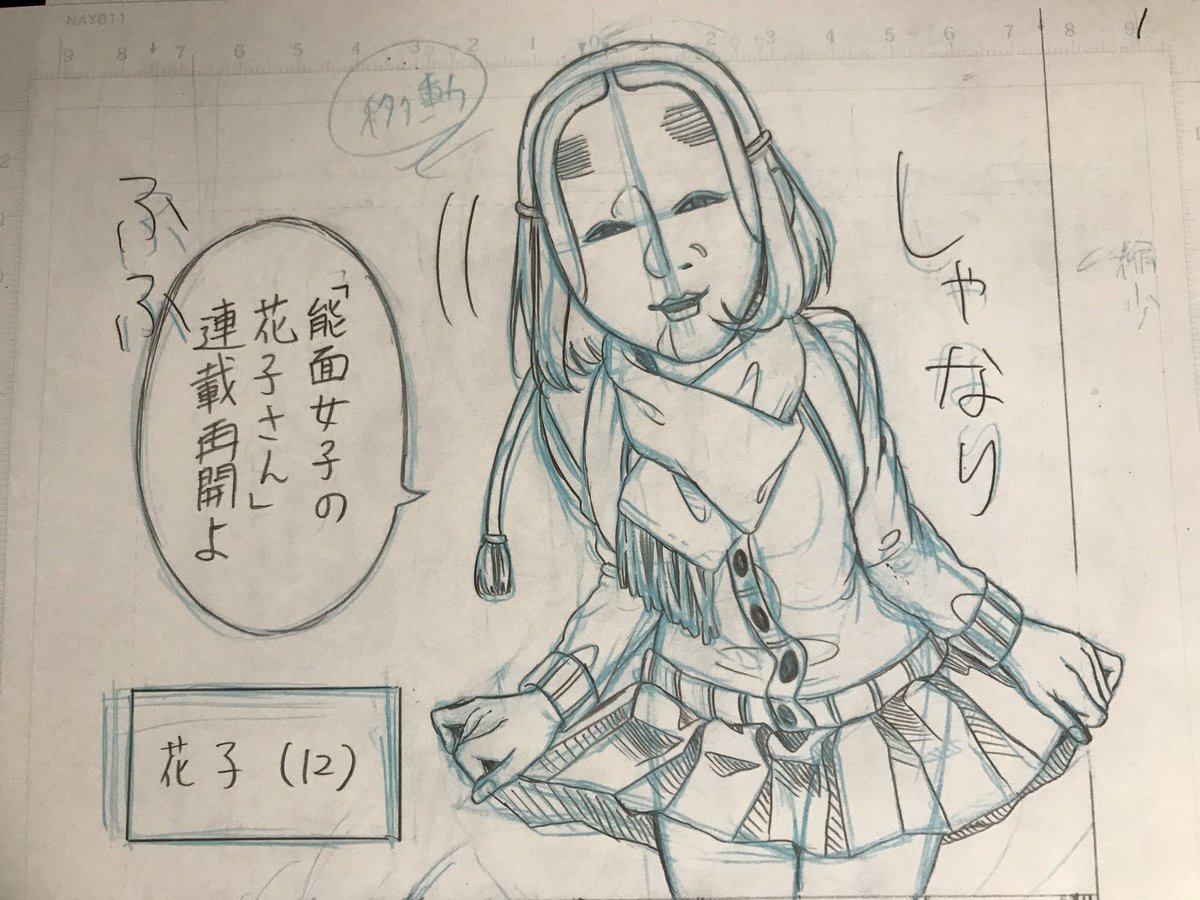 NAY011
9 8 7 6 5 4 3 2 1 0 1 2 3 4 5 6 7 8 9
1
移動
しゃなり
縮少
「能面女子の
花子さん」
連載再開よ
ふふ
花子(12)